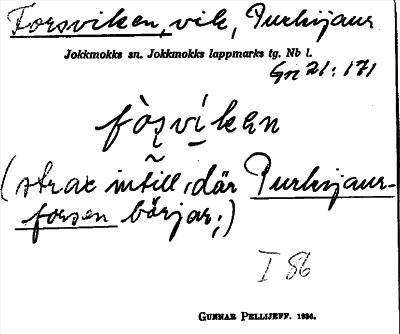 Forsviken, vik, Purkijaur
Jokkmokks sn. Jokkmokks lappmarks tg. Nb l.
Gri 21:171
fòs̰víken
(strax intill, där Purkijaur-
forsen börjar.)
I 86
GUNNAR PELLIJEFF. 1936.